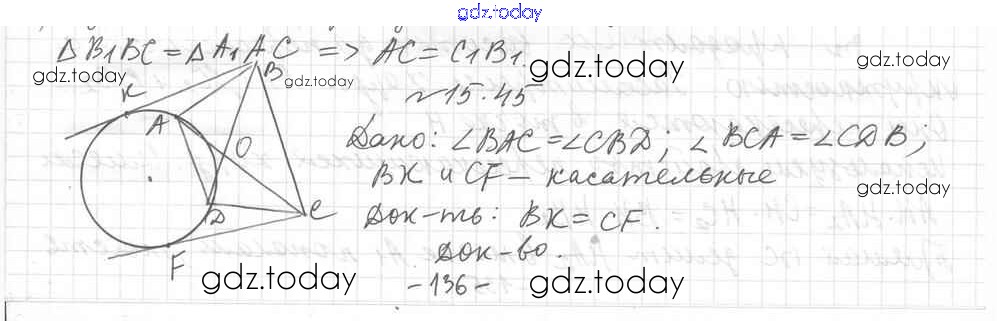 gdz.today
Δ B₁BC = Δ A₁AC => AC = C₁B₁.
gdz.today
gdz.today
gdz.today
gdz.today
K
B
№ 15.45
A
O
Дано: ∠BAC = ∠CBD; ∠BCA = ∠CDB;
BK и CF – касательные
gdz.today
D
C
Док-ть: BK = CF.
Док-во.
F
gdz.today
- 136 -
gdz.today
gdz.today